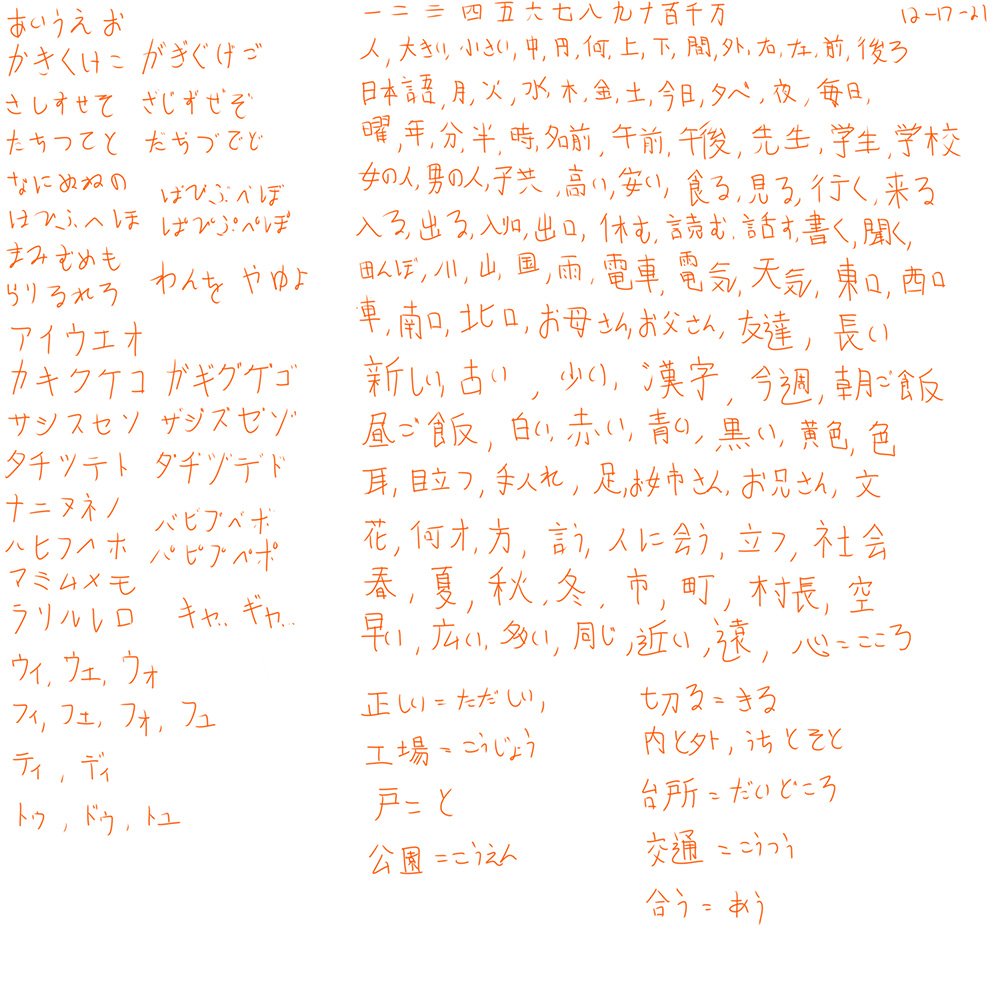 あいうえお
かきくけこ がぎぐげご
さしすせそ ざじずぜぞ
たちつてと だぢづでど
なにぬねの
ばびぶべぼ
はひふへほ
ぱぴぷぺぽ
まみむめも
わんを やゆよ
らりるれろ
アイウエオ
カキクケコ ガギグゲゴ
サシスセソ ザジズゼゾ
タチツテト ダヂヅデド
ナニヌネノ
バビブベボ
ハヒフヘホ
パピプペポ
マミムメモ
ラリルレロ キャ.. ギャ..
ウィ, ウェ, ウォ
フィ, フェ, フォ, フュ
ティ, ディ
トゥ, ドゥ, トュ
一二三四五六七八九十百千万
12-17-21
人, 大きい, 小さい, 中, 円, 何, 上, 下, 間, 外, 右, 左, 前, 後ろ
日本語, 月, 火, 水, 木, 金, 土, 今日, 夕べ, 夜, 毎日,
曜, 年, 分, 半, 時, 名前, 午前, 午後, 先生, 学生, 学校
女の人, 男の人, 子共, 高い, 安い, 食る, 見る, 行く, 来る
入る, 出る, 入口, 出口, 休む, 読む, 話す, 書く, 聞く,
田んぼ, 川, 山, 国, 雨, 電車, 電気, 天気, 東口, 西口
車, 南口, 北口, お母さん, お父さん, 友達, 長い
新しい, 古い, 少い, 漢字, 今週, 朝ご飯
昼ご飯, 白い, 赤い, 青い, 黒い, 黄色, 色
耳, 目立つ, 手入れ, 足, お姉さん, お兄さん, 文
花, 何才, 方, 言う, 人に会う, 立つ, 社会
春, 夏, 秋, 冬, 市, 町, 村長, 空
早い, 広い, 多い, 同じ, 近い, 遠, 心=こころ
正しい=ただしい,
工場=こうじょう
戸=と
公園=こうえん
切る=きる
内と外, うちとそと
台所=だいどころ
交通=こうつう
合う=あう